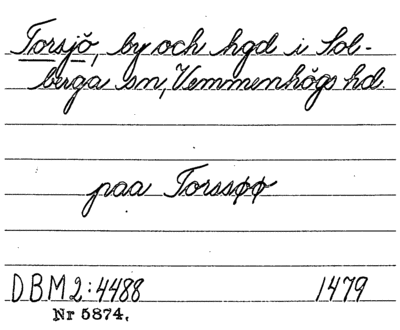 Torsjö, by och hgd i Sol-
berga sn, Vemmenhögs hd.
paa Torssøø
DBM 2:4488 1479
Nr 5874.